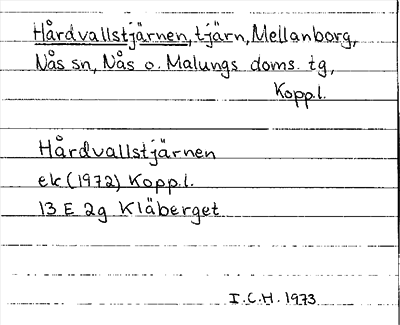 Hårdvallstjärnen, tjärn, Mellanborg,
Nås sn, Nås o. Malungs doms. tg,
Kopp.l.
Hårdvallstjärnen
ek (1972) Kopp.l.
13 E 2g Kläberget
I.C.H. 1973